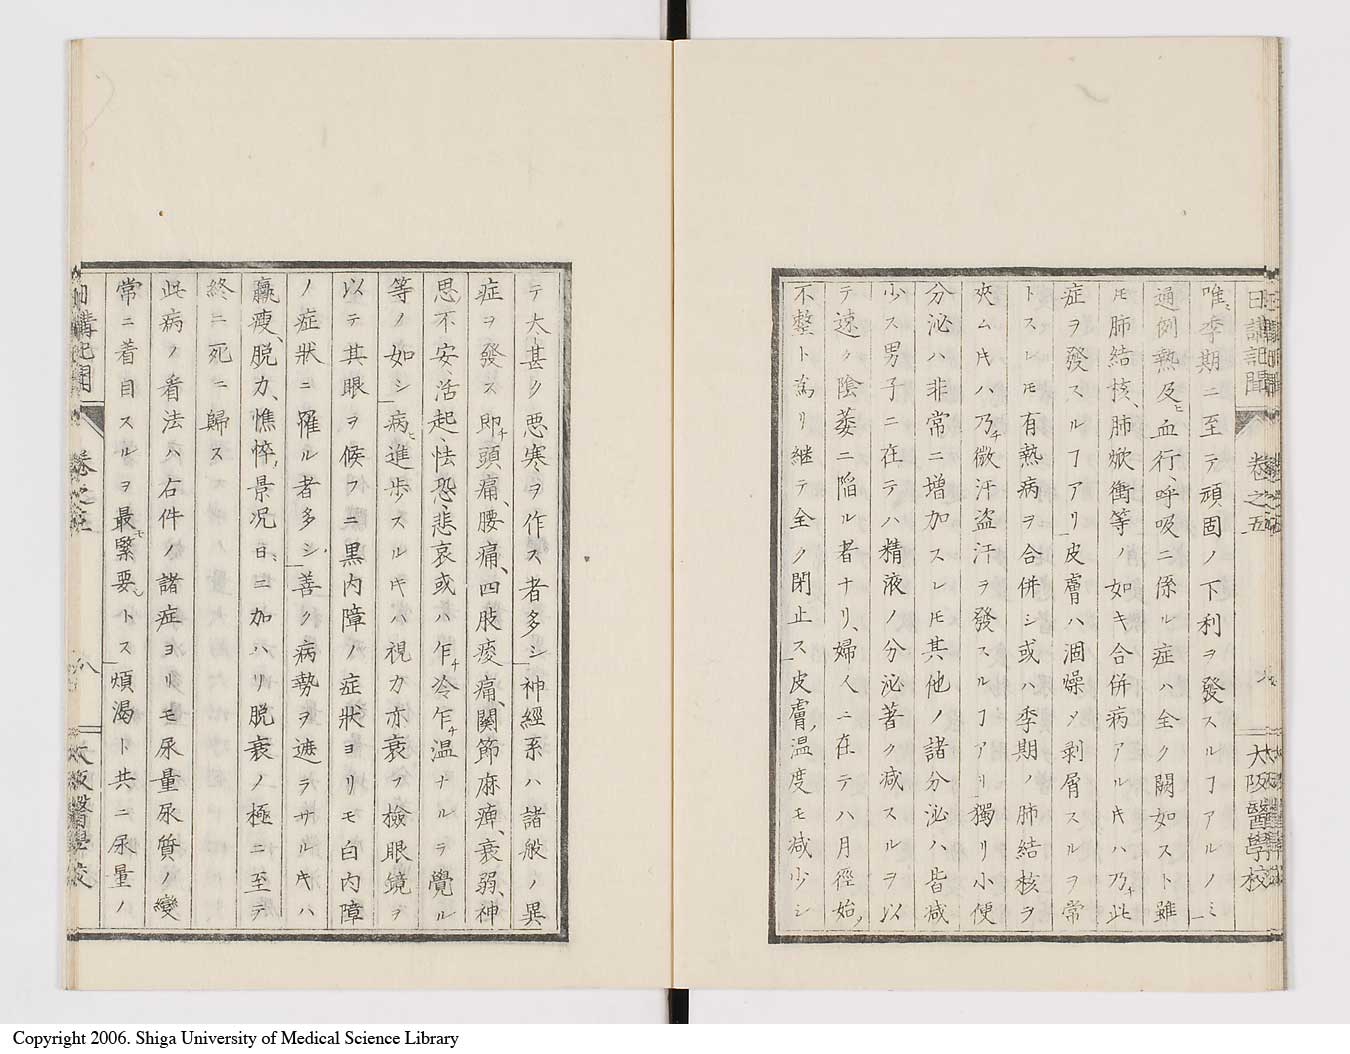 日講記聞
卷之五
八
大阪醫學校
唯季期ニ至テ頑固ノ下利ヲ發スルヿアルノミ
通例熱及ヒ血行、呼吸ニ係ル症ハ全ク闕如スト雖
𪜈肺結核、肺焮衝等ノ如キ合併病アルキハ乃チ此
症ヲ發スルヿアリ皮膚ハ涸燥〆剥屑スルヲ常
トスレ𪜈有熱病ヲ合併シ或ハ季期ノ肺結核ヲ
夾ムキハ乃チ微汗盗汗ヲ發スルヿアリ獨リ小便
分泌ハ非常ニ増加スレ𪜈其他ノ諸分泌ハ皆减
少ス男子ニ在テハ精液ノ分泌著ク减スルヲ以
テ速ク陰萎ニ陥ル者ナリ、婦人ニ在テハ月徑始ノ
不整ト為リ継テ全ク閉止ス皮膚ノ温度モ减少シ
テ大甚ク悪寒ヲ作ス者多シ神經系ハ諸般ノ異
症ヲ發ス即チ頭痛、腰痛、四肢痠痛、關節麻痺、衰弱、神
思不安、活起、怯恐、悲哀或ハ乍チ冷乍チ温ナルヲ覺ル
等ノ如シ病ヒ進歩スルキハ視力亦衰フ檢眼鏡ヲ
以テ其眼ヲ候フニ黒内障ノ症狀ヨリモ白内障
ノ症狀ニ罹ル者多シ、善ク病勢ヲ遮ラサルキハ
羸瘦、脱力、憔悴ノ景况日ニ加ハリ脱衰ノ極ニ至テ
終ニ死ニ歸ス
此病ノ看法ハ右件ノ諸症ヨリモ尿量尿質ノ變
常ニ着目スルヲ最モ緊要トス煩渇ト共ニ尿量ノ
日講記聞
卷之五
八
大阪醫學校
Copyright 2006. Shiga University of Medical Science Library